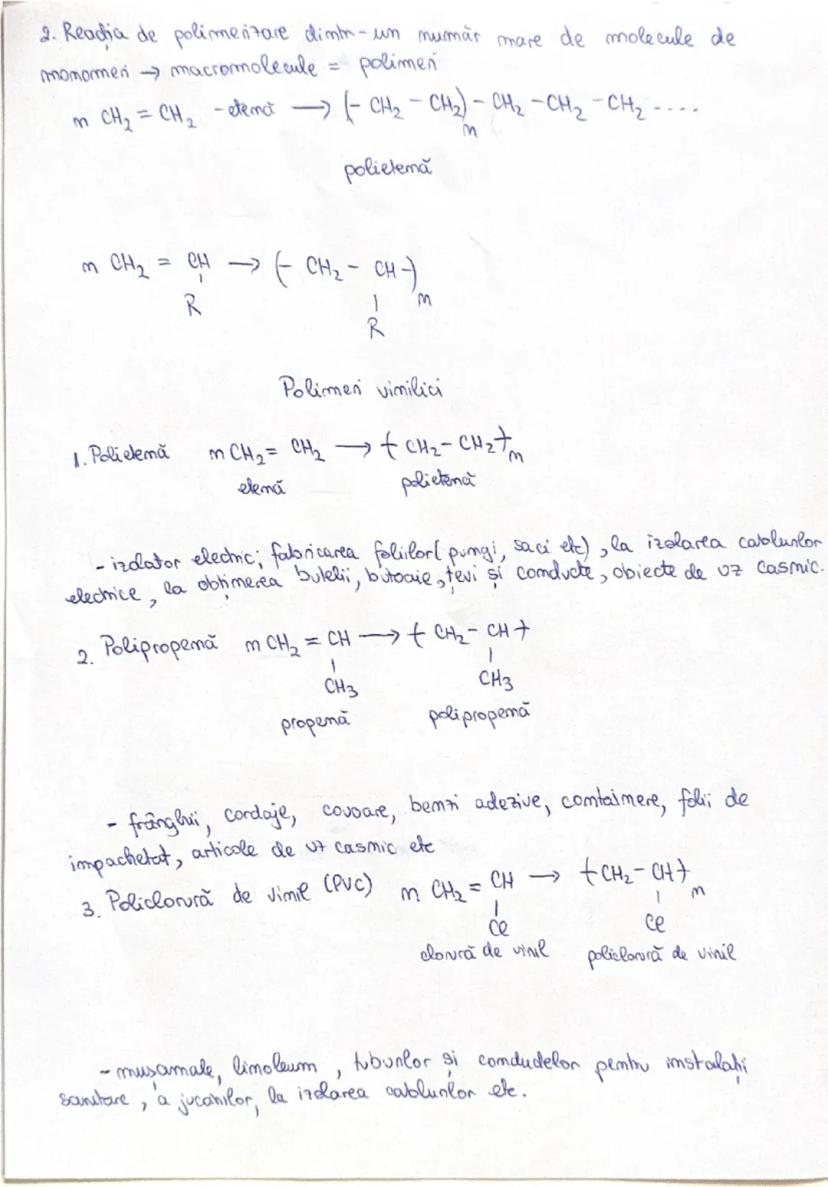 2. Reacția de polimerizare dintr-un număr mare de molecule de
monomeri → macromolecule = polimeri
n CH₂ = CH₂ - etenă → (- CH₂ - CH₂)ₙ - CH₂ - CH₂ - CH₂ - ....
polietenă
n CH₂ = CH → (- CH₂ - CH -)ₙ
R R
Polimeri vinilici
1. Polietenă n CH₂ = CH₂ → (CH₂ - CH₂)ₙ
etenă polietenă
- izolator electric; fabricarea foliilor (pungi, saci etc), la izolarea cablurilor
electrice, la obținerea butelii, butoaie, țevi și conducte, obiecte de uz casnic.
2. Polipropenă n CH₂ = CH → (CH₂ - CH)
CH₃ CH₃
propenă polipropenă
- frânghii, cordaje, covoare, benzi adezive, containere, folii de
impachetat, articole de uz casnic etc
3. Policlorură de vinil (PVC) n CH₂ = CH → (CH₂ - CH)ₙ
Cl Cl
clorură de vinil policlorură de vinil
- mușamale, linoleum, tuburilor și conductelor pentru instalații
sanitare, a jucăriilor, la izolarea cablurilor etc.